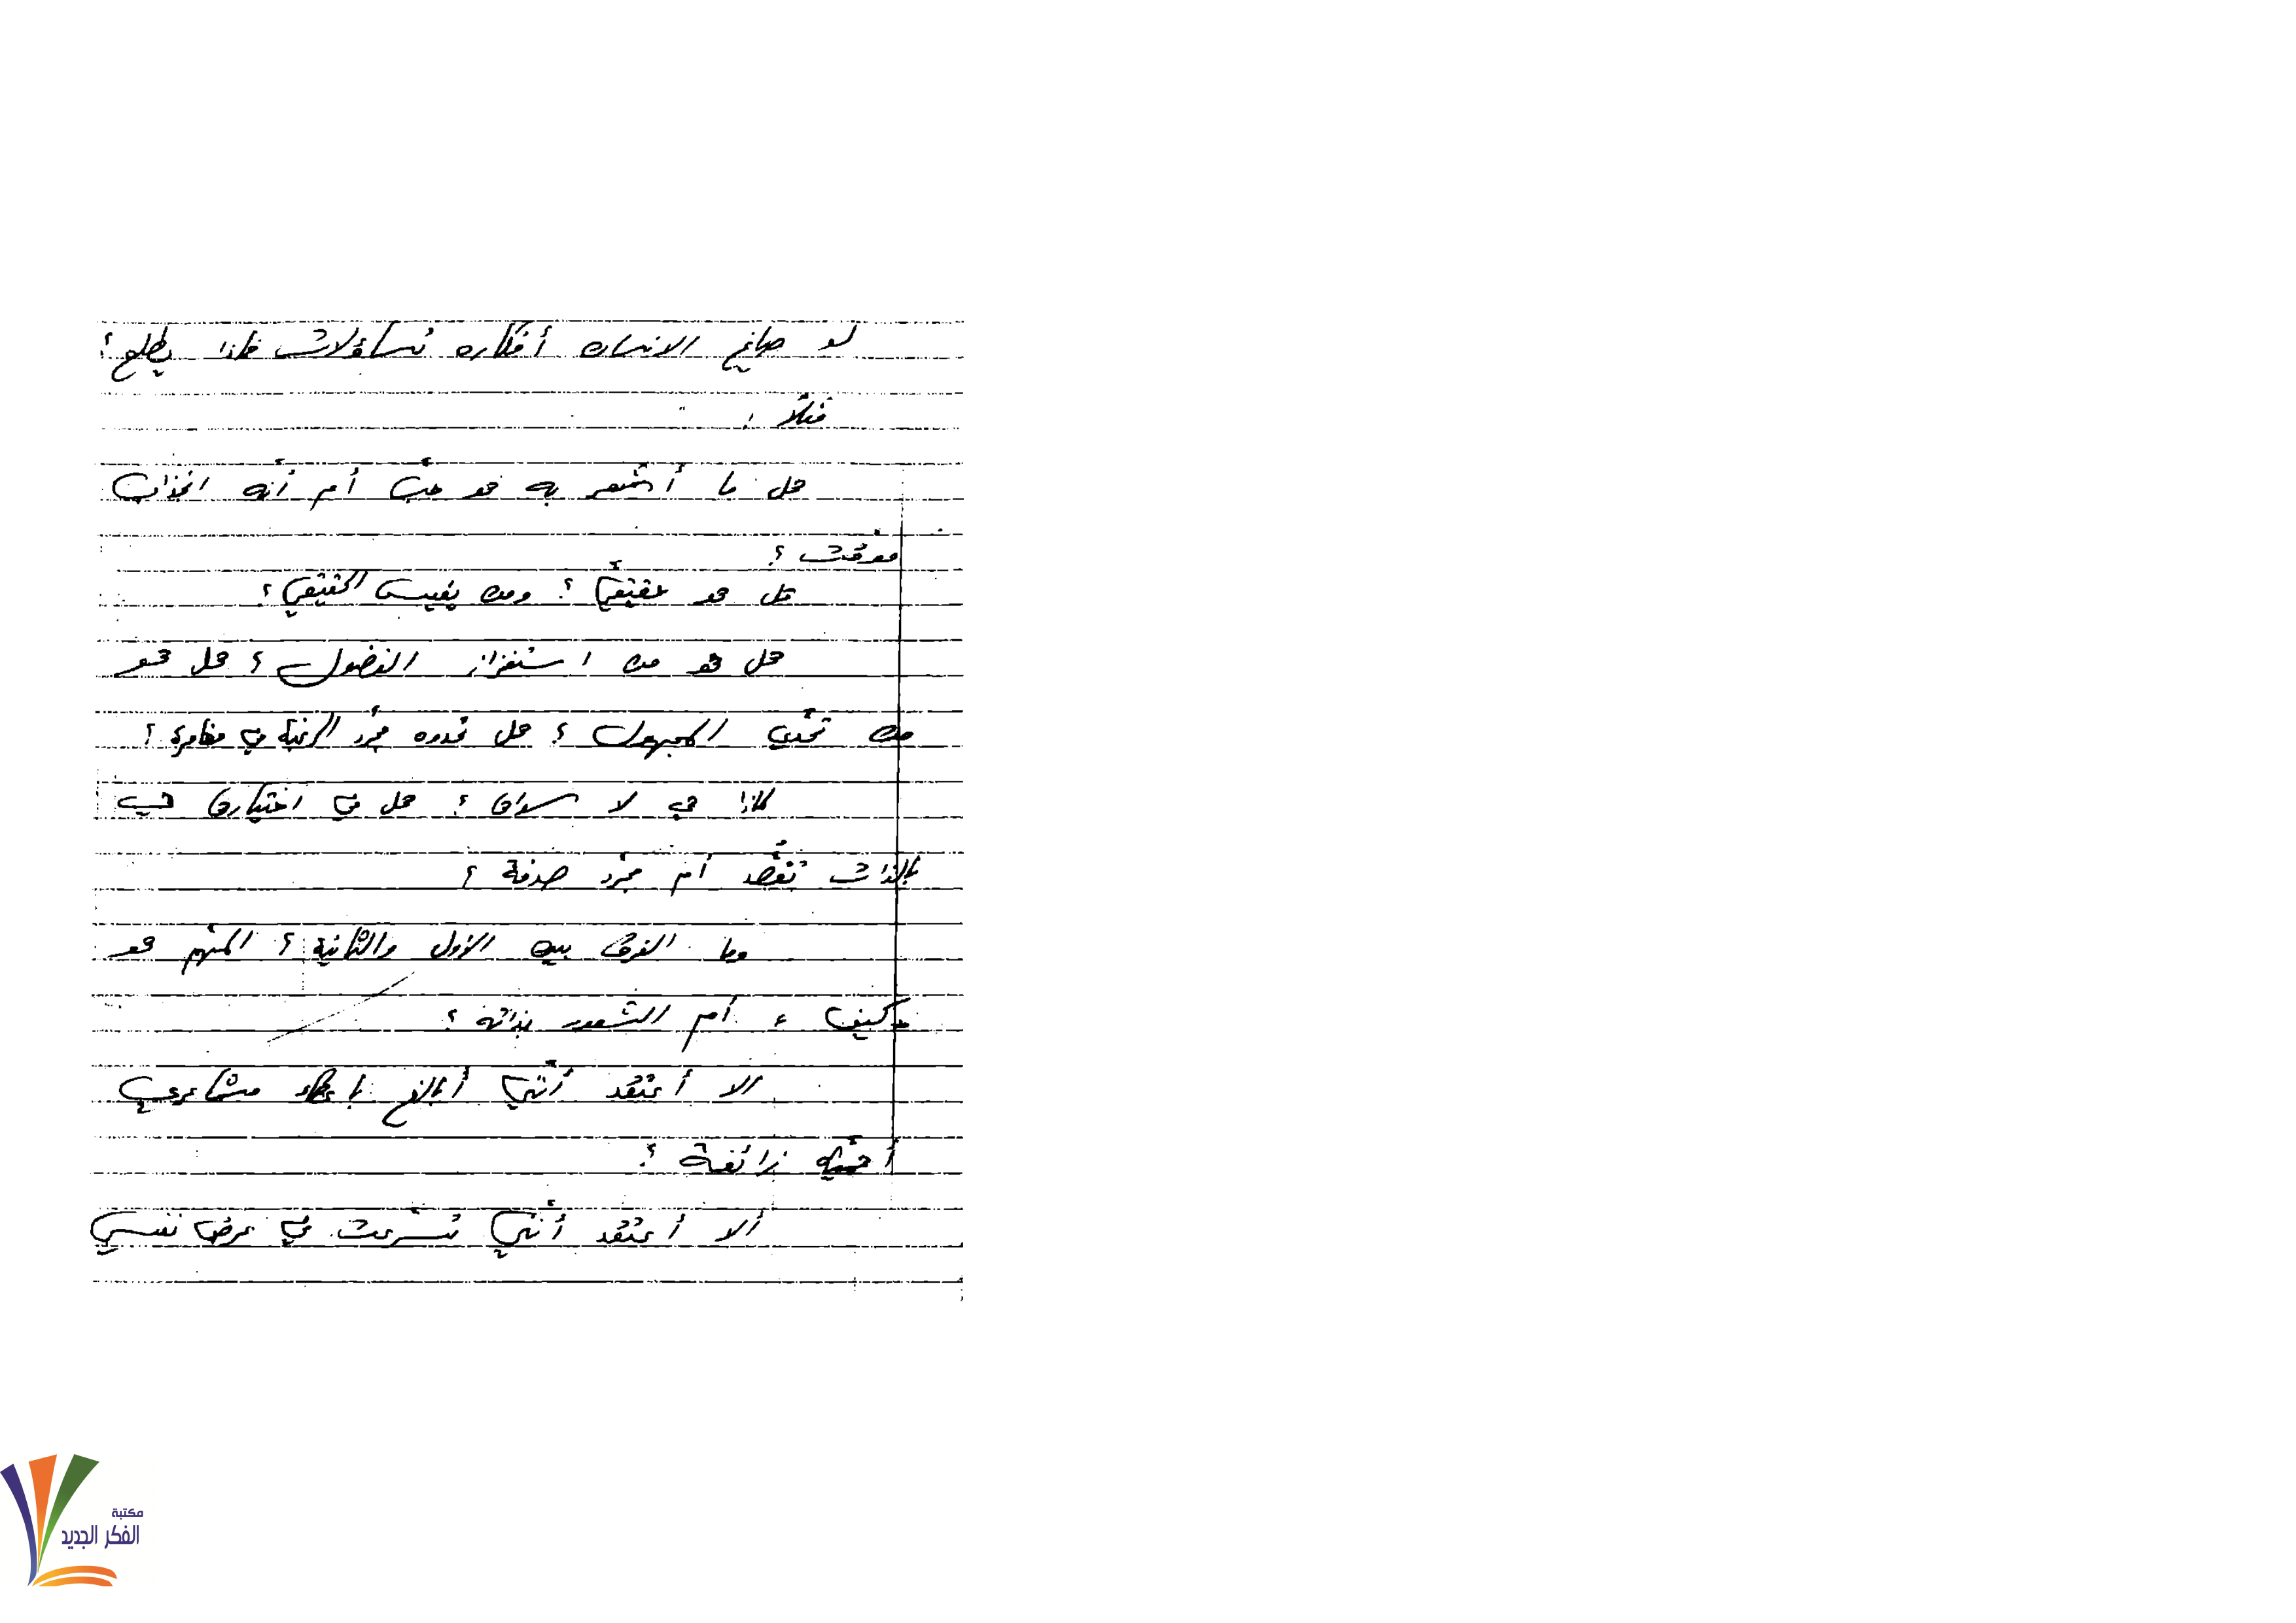 لو صاغ الانسان أفكاره تساؤلات فماذا يطلع؟
مثلاً :
هل ما أشعر به هو حبّ أم أنه انجذاب
موقت ؟
هل هو حقيقيّ ؟ ومن يقيس الحقيقي ؟
هل هو من استفزاز الفضول ؟ هل هو
من تحدّي المجهول ؟ هل تحدوه مجرّد الرغبة في مغامرة ؟
لماذا هي لا سواها ؟ هل في اختيارها هي
بالذات تقصّد أم مجرّد صدفة ؟
وما الفرق بين الأول والثانية ؟ المهم هو
كيف ، أم الشعور بذاته ؟
الا أعتقد أنّني أبالغ باعطاء مشاعري
أهميّة زائفة ؟
ألا أعتقد أنّني تسرعت في عرض نفسي
مكتبة
الفكر الجديد